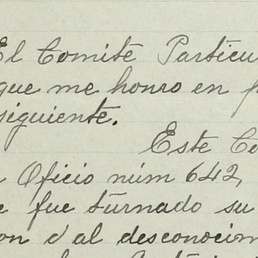 El Comite Particu
que me honro en p
siguiente.
Este Co
Oficio núm 642,
e fue turnado su
on d al desconocim